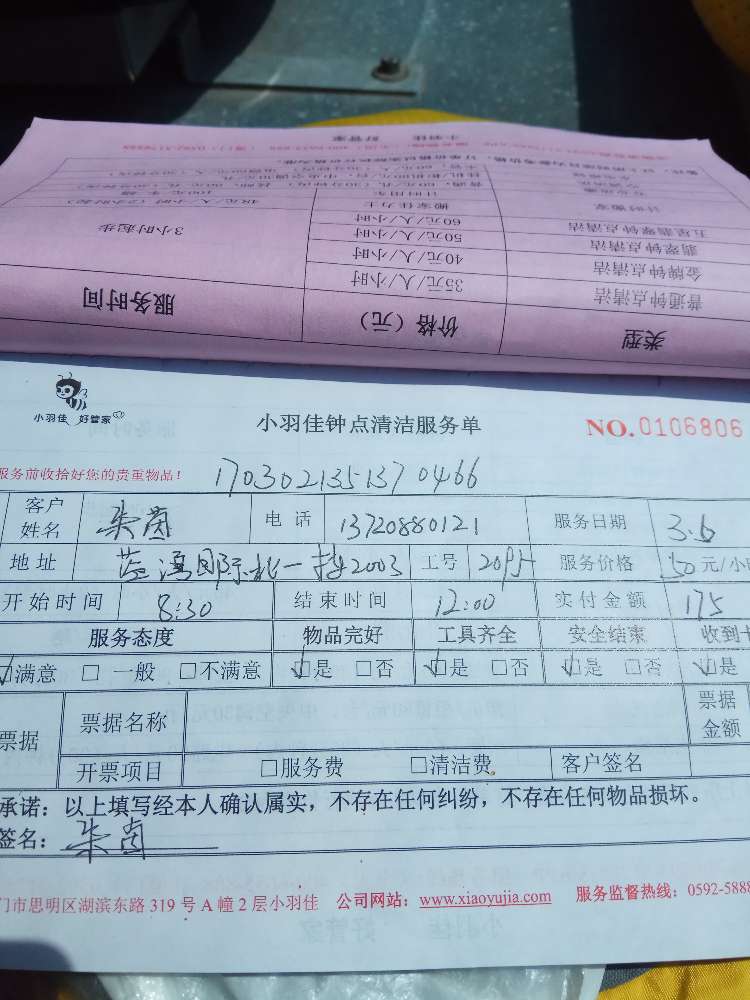 类型 价格（元） 服务时间
普通钟点清洁 35元/人/小时
金牌钟点清洁 40元/人/小时
翡翠钟点清洁 50元/人/小时 3小时起步
五星翡翠钟点清洁 60元/人/小时
小羽佳 好管家
小羽佳钟点清洁服务单
NO.0106806
服务前收拾好您的贵重物品！
1703021351370466
客户姓名 朱茵 电话 13720880121 服务日期 3.6
地址 2003 工号 服务价格 50元/小
开始时间 8:30 结束时间 12:00 实付金额 175
服务态度 物品完好 工具齐全 安全结束 收到
满意 一般 不满意 是 否 是 否 是 否 是
票据 票据名称 票据金额
开票项目 服务费 清洁费 客户签名
承诺：以上填写经本人确认属实，不存在任何纠纷，不存在任何物品损坏。
签名：朱茵
门市思明区湖滨东路 319 号 A 幢 2 层小羽佳 公司网站：www.xiaoyujia.com 服务监督热线：0592-588